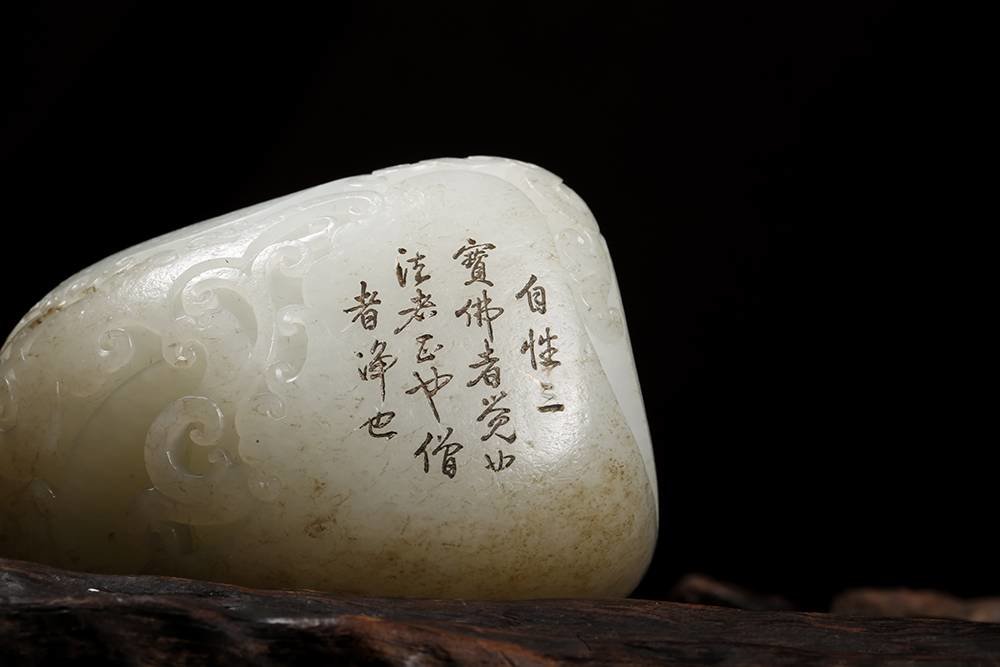 自性三
寶佛者觉也
法者正也僧
者净也